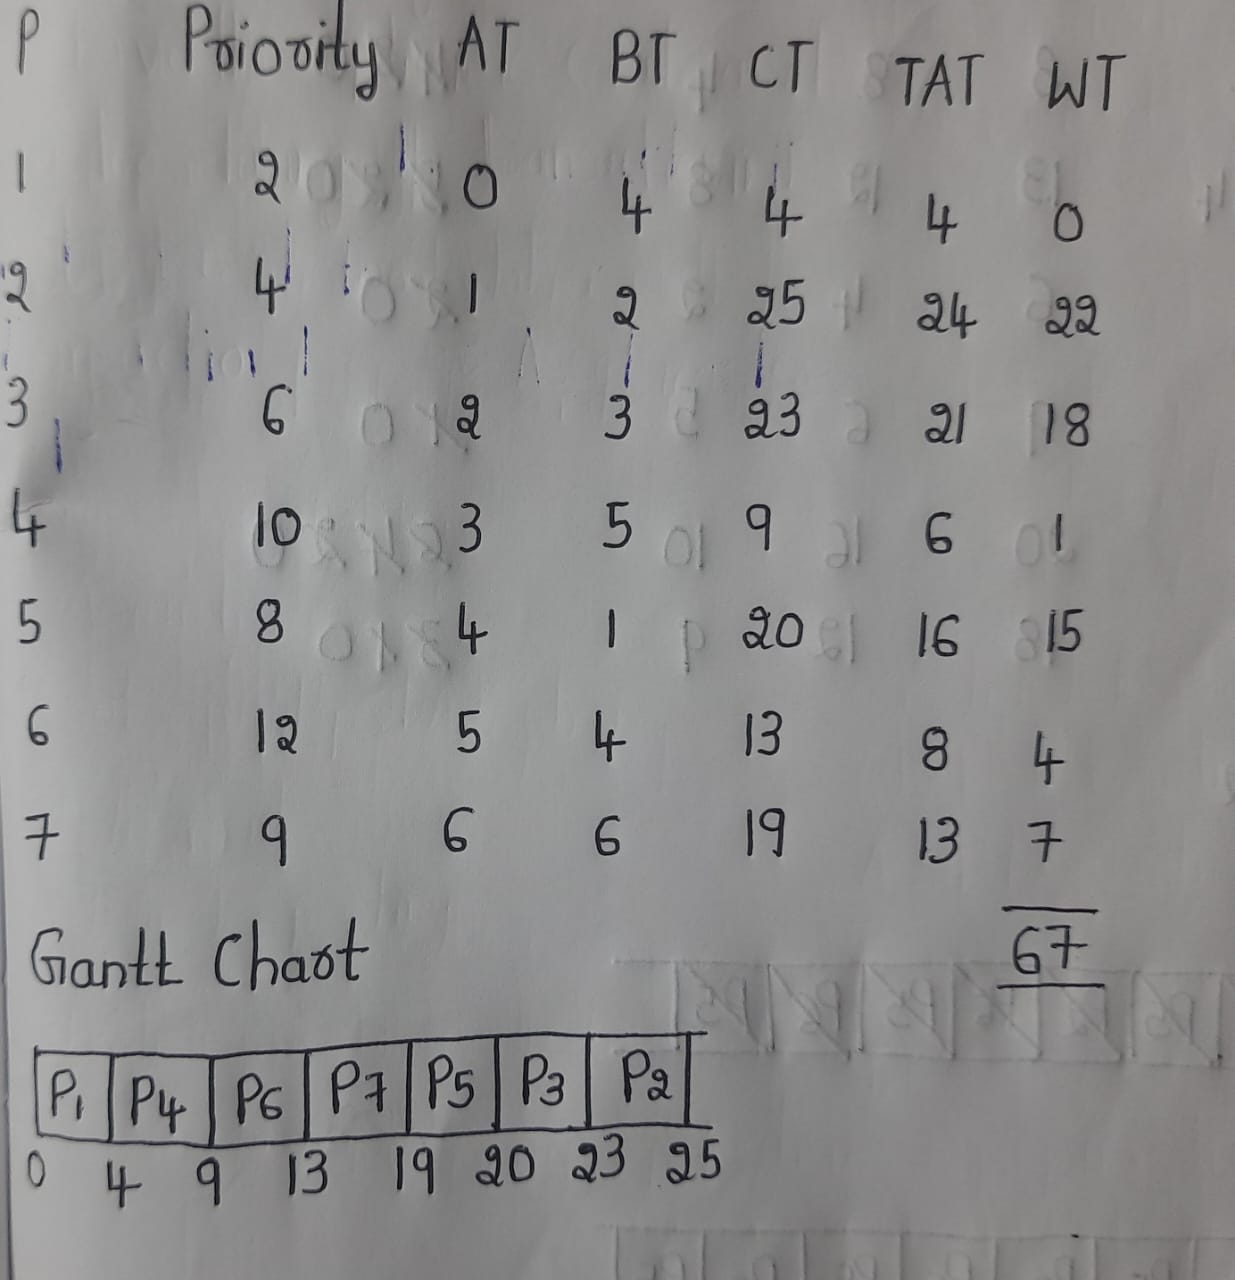 P Priority AT BT CT TAT WT
1 2 0 4 4 4 0
2 4 1 2 25 24 22
3 6 2 3 23 21 18
4 10 3 5 9 6 1
5 8 4 1 20 16 15
6 12 5 4 13 8 4
7 9 6 6 19 13 7
67
Gantt Chart
P1 P4 P6 P7 P5 P3 P2
0 4 9 13 19 20 23 25